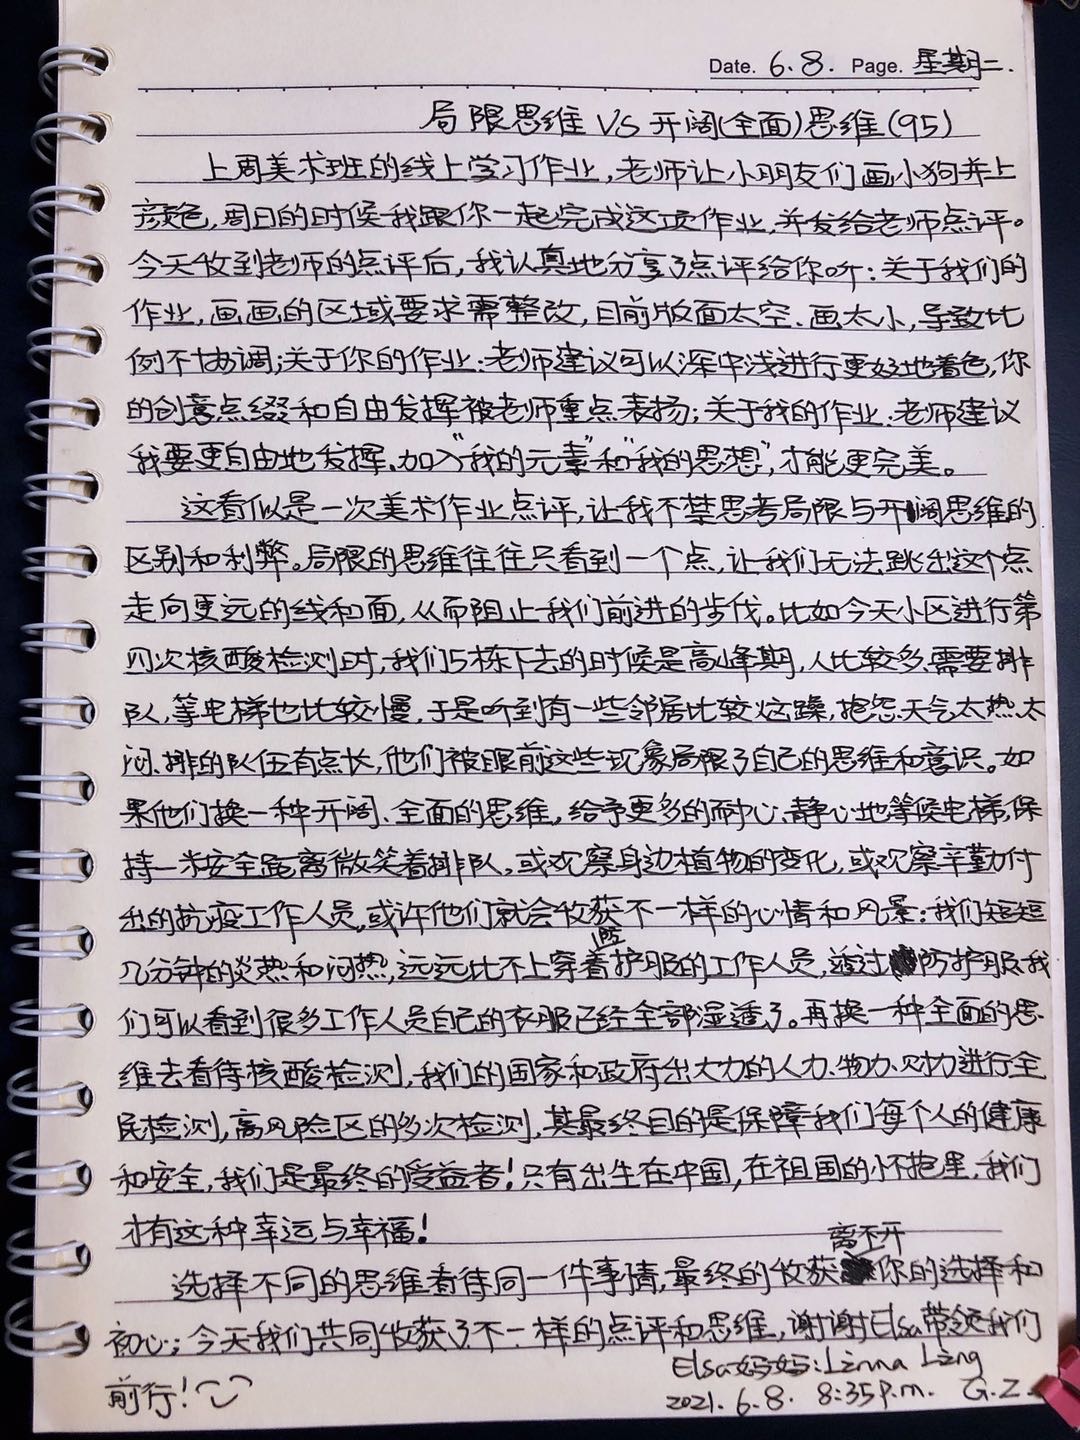 Date. 6.8. Page. 星期二.
局限思维 VS 开阔(全面)思维(95)
上周美术班的线上学习作业,老师让小朋友们画小狗并上
颜色,周日的时候我跟你一起完成这项作业,并发给老师点评。
今天收到老师的点评后,我认真地分享了点评给你听:关于我们的
作业,画画的区域要求需整改,目前版面太空、画太小,导致比
例不协调;关于你的作业:老师建议可以深中浅进行更好地着色,你
的创意点缀和自由发挥被老师重点表扬;关于我的作业:老师建议
我要更自由地发挥,加入“我的元素”和“我的思想”,才能更完美。
这看似是一次美术作业点评,让我不禁思考局限与开阔思维的
区别和利弊。局限的思维往往只看到一个点,让我们无法跳出这个点
走向更远的线和面,从而阻止我们前进的步伐。比如今天小区进行第
四次核酸检测时,我们5栋下去的时候是高峰期,人比较多、需要排
队,等电梯也比较慢,于是听到有一些邻居比较烦躁,抱怨天气太热、太
闷、排的队伍有点长,他们被眼前这些现象局限了自己的思维和意识。如
果他们换一种开阔、全面的思维,给予更多的耐心、静心地等候电梯,保
持一米安全距离微笑着排队,或观察身边植物的变化,或观察辛勤付
出的抗疫工作人员,或许他们就会收获不一样的心情和风景:我们短短
几分钟的炎热和闷热,远远比不上穿着防护服的工作人员,透过防护服,我
们可以看到很多工作人员自己的衣服已经全部湿透了。再换一种全面的思
维去看待核酸检测,我们的国家和政府出大力的人力、物力、财力进行全
民检测,高风险区的多次检测,其最终目的是保障我们每个人的健康
和安全,我们是最终的受益者!只有出生在中国,在祖国的怀抱里,我们
才有这种幸运与幸福!
选择不同的思维看待同一件事情,最终的收获离不开你的选择和
初心;今天我们共同收获了不一样的点评和思维,谢谢Elsa带领我们
前行!
Elsa妈妈:Linna Ling
2021.6.8. 8:35p.m. G.Z.